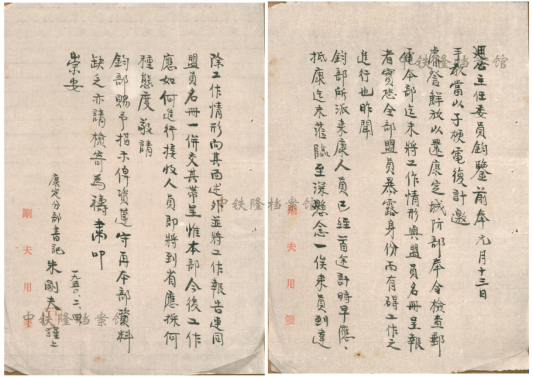 迺公主任委員鈞鑒前奉元月十三日
手教當以子梗電復計邀
康營鮮放以還康定城防部奉令檢查郵
電令部迄未將工作情形與盟員名冊呈報
者實恐全部盟員暴露身份而有碍工作之
進行也昨聞
鈞部所派來康人員已經首途計時早應
抵康迄未蒞臨至深懸念一俟來員到達
剛夫用箋
除工作情形向其面述外並將工作報告連同
盟員名冊一併交其帶呈惟本部今後工作
應如何進行接收人員即將到省應採何
種態度敬請
鈞部賜予指示俾資遵守再本部資料
缺乏亦請檢寄為禱肅叩
崇安
康定分部書記朱剛夫謹上
一九五〇、三、四
剛夫用箋
中铁隆档案馆
中铁隆档案馆
中铁隆档案馆